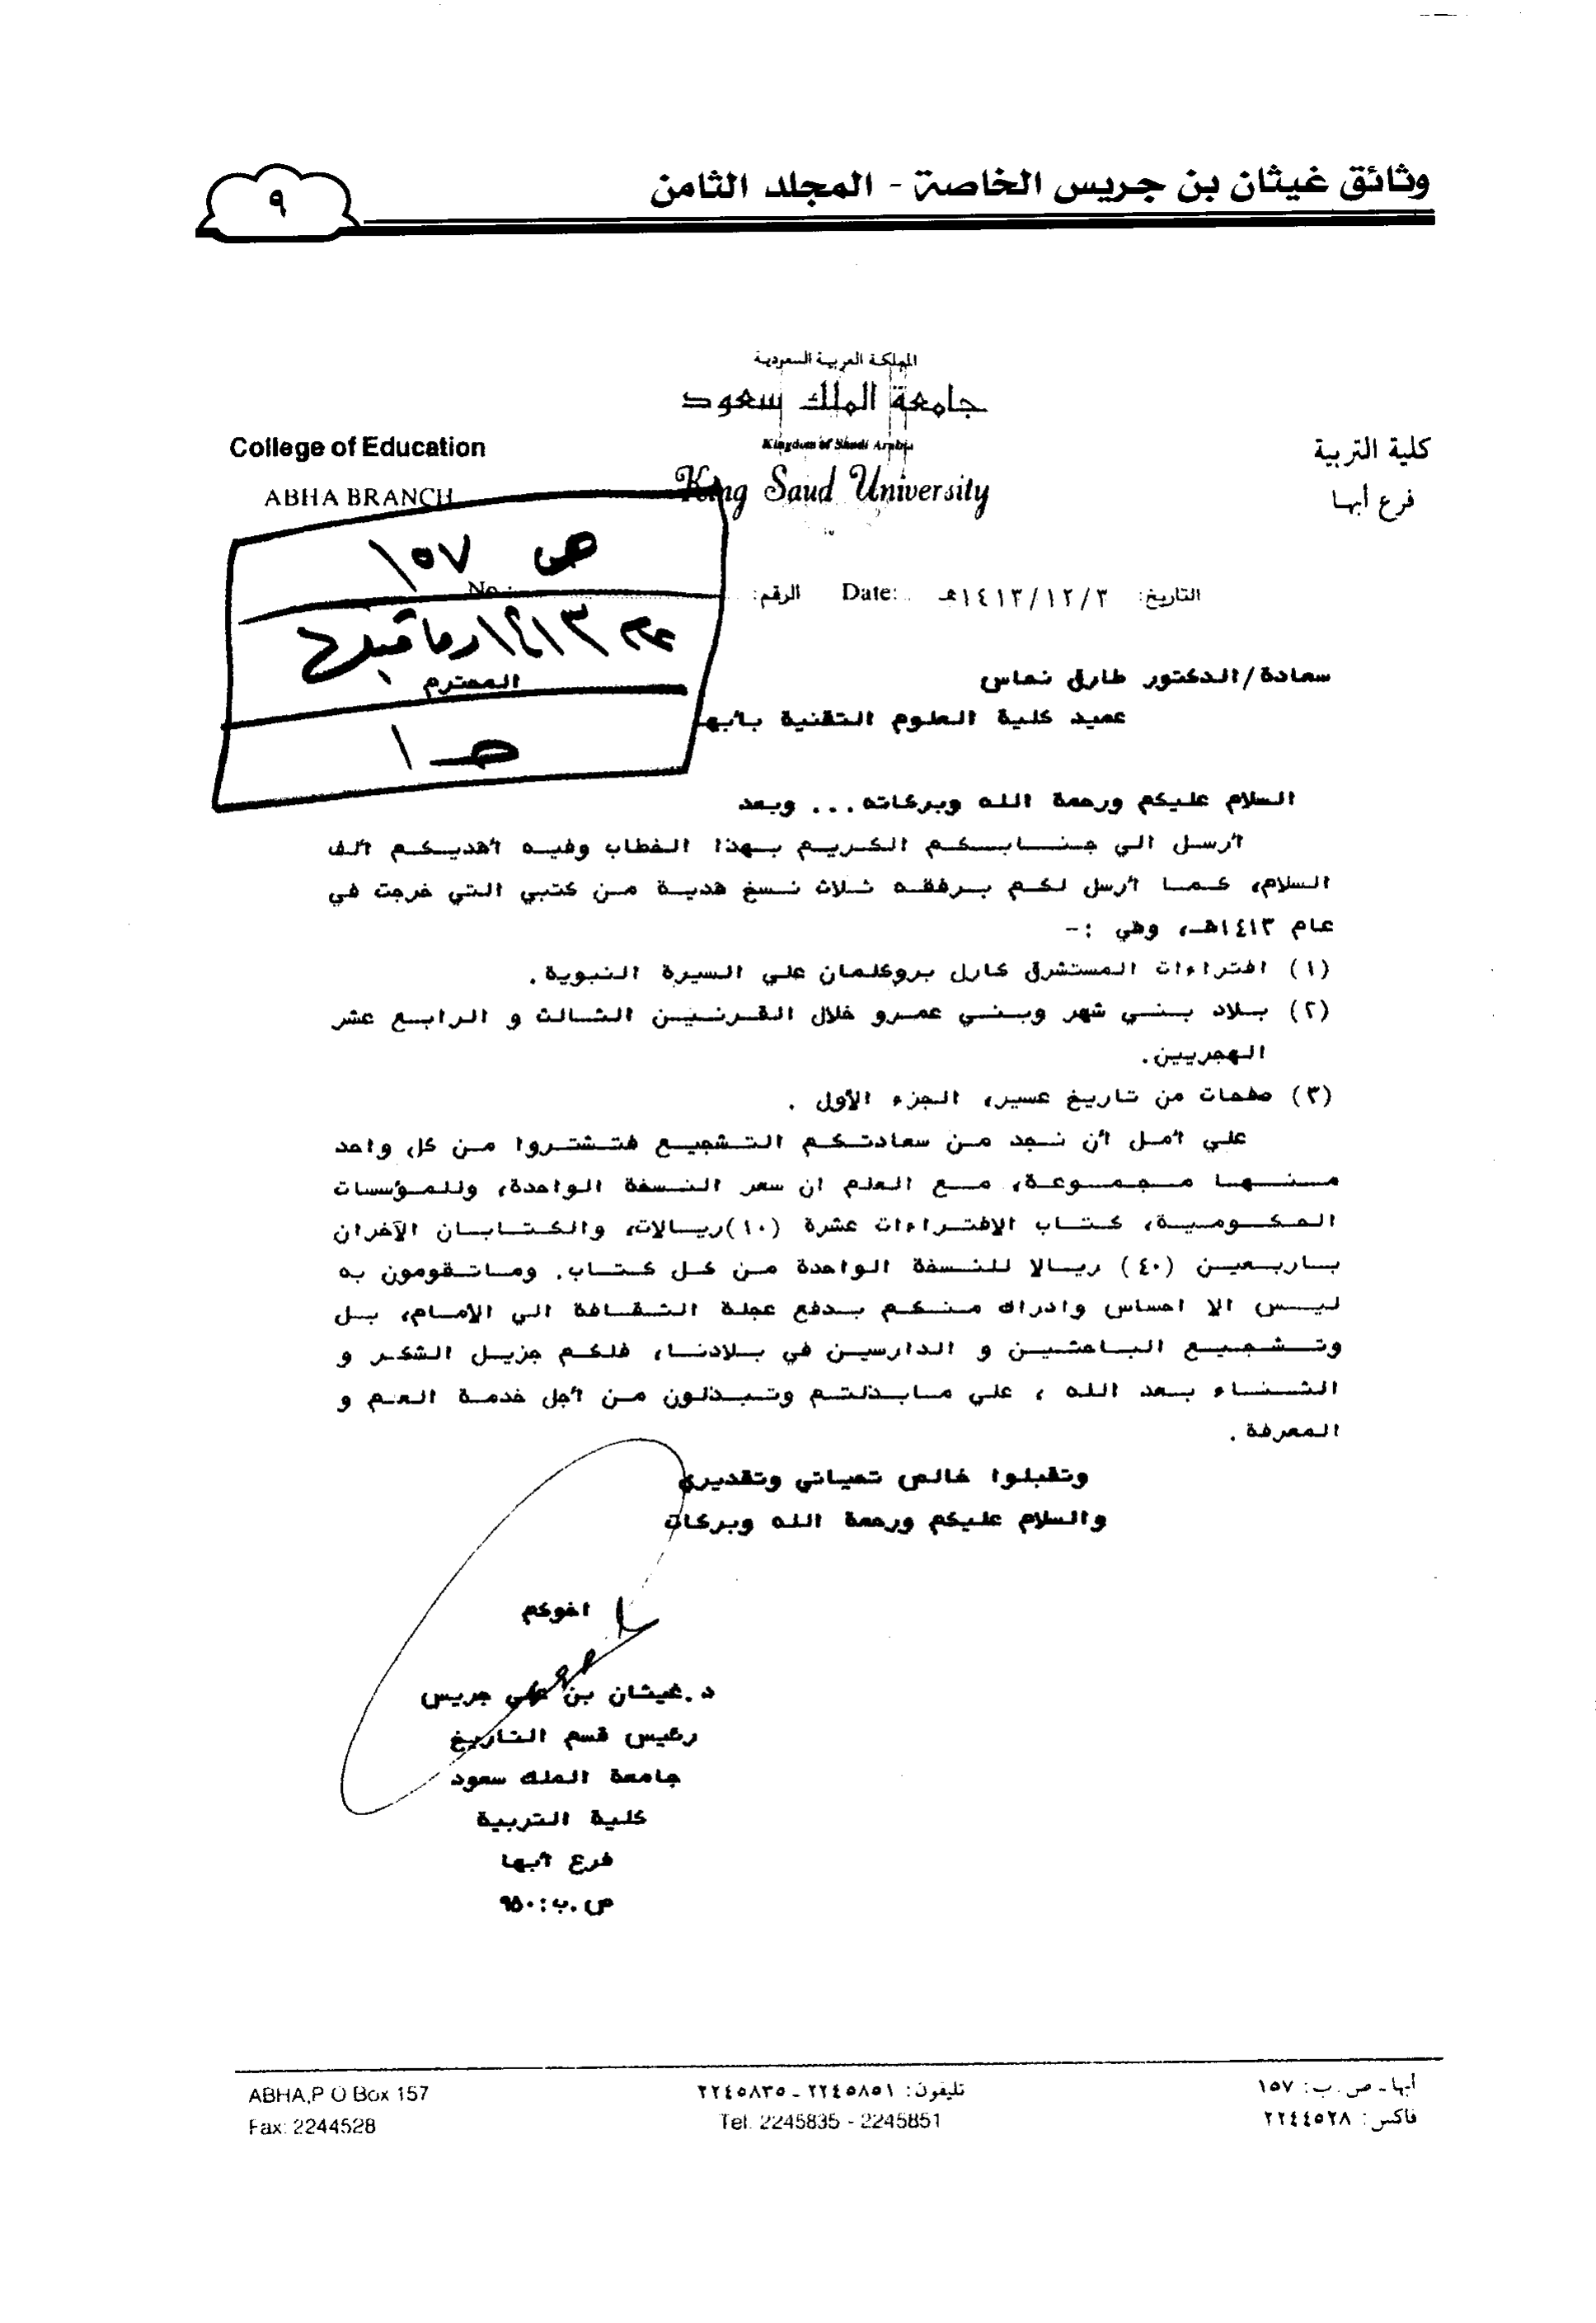 وثائق غيثان بن جريس الخاصة - المجلد الثامن
٩
المملكة العربية السعودية
جامعة الملك سعود
Kingdom of Saudi Arabia
King Saud University
كلية التربية
فرع أبها
College of Education
ABHA BRANCH
ص ١٥٧
التاريخ: ١٤١٣/١٢/٣هـ Date: الرقم: No:
عام ١٤١٣ وما قبله
ص ١
سعادة/الدكتور طارق نحاس المحترم
عميد كلية العلوم التقنية بأبها
السلام عليكم ورحمة الله وبركاته... وبعد
أرسل الي جنابكم الكريم بهذا الخطاب وفيه أهديكم ألف
السلام، كما أرسل لكم برفقه ثلاث نسخ هدية من كتبي التي خرجت في
عام ١٤١٣هـ، وهي :-
(١) افتراءات المستشرق كارل بروكلمان علي السيرة النبوية.
(٢) بلاد بني شهر وبني عمرو خلال القرنين الثالث و الرابع عشر
الهجريين.
(٣) صفحات من تاريخ عسير، الجزء الأول .
علي أمل أن نجد من سعادتكم التشجيع فتشتروا من كل واحد
منها مجموعة، مع العلم ان سعر النسخة الواحدة، وللمؤسسات
الحكومية، كتاب الإفتراءات عشرة (١٠)ريالات، والكتابان الآخران
باربعين (٤٠) ريالا للنسخة الواحدة من كل كتاب. وماتقومون به
ليس الا احساس وادراك منكم بدفع عجلة الثقافة الي الإمام، بل
وتشجيع الباحثين و الدارسين في بلادنا، فلكم جزيل الشكر و
الثناء بعد الله ، علي مابذلتم وتبذلون من أجل خدمة العم و
المعرفة .
وتقبلوا خالص تحياتي وتقديري
والسلام عليكم ورحمة الله وبركات
اخوكم
د.غيثان بن علي جريس
رئيس قسم التاريخ
جامعة الملك سعود
كلية التربية
فرع أبها
ص.ب:٩٥٠
أبها ـ ص . ب : ١٥٧
فاكس : ٢٢٤٤٥٢٨
تليفون : ٢٢٤٥٨٥١ ـ ٢٢٤٥٨٣٥
Tel. 2245835 - 2245851
ABHA,P O Box 157
Fax: 2244528